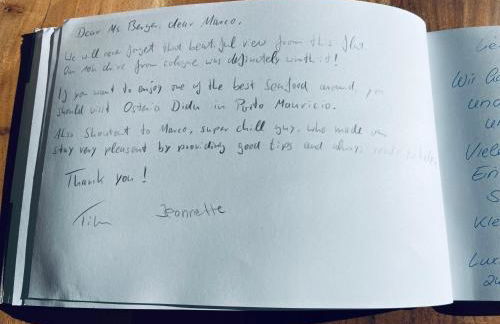 Dear Ms Berger, dear Marco,
We will never forget that beautiful view from this flat.
Our 10h drive from cologne was definitely worth it!
If you want to enjoy one of the best Seafood around you
should visit Osteria Didù in Porto Mauricio.
Also Shoutout to Marco, super chill guy, who made our
stay very pleasent by providing good tips and always
Thank you!
Tim Jeannette
Wir
und
Viele